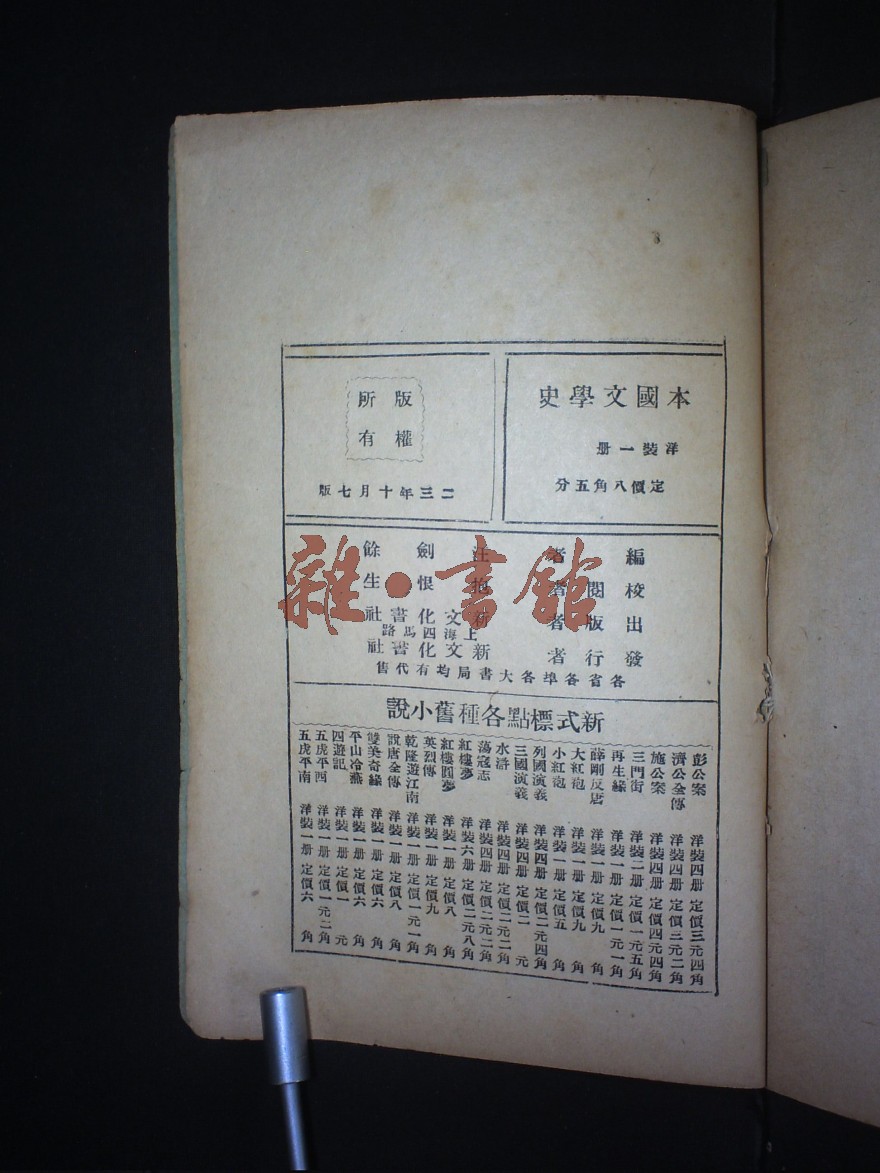 本國文學史
洋裝一册
定價八角五分
版權所有
二三年十月七版
編者 汪劍餘
校閱者 抱恨生
出版者 新文化書社
上海四馬路
發行者 新文化書社
各省各埠各大書局均有代售
新式標點各種舊小說
彭公案 洋裝四册 定價三元四角
濟公全傳 洋裝四册 定價三元二角
施公案 洋裝四册 定價四元四角
三門街 洋裝二册 定價一元五角
再生緣 洋裝一册 定價一元一角
薛剛反唐 洋裝一册 定價九角
大紅袍 洋裝一册 定價九角
小紅袍 洋裝一册 定價五角
列國演義 洋裝四册 定價二元四角
三國演義 洋裝四册 定價二元
水滸 洋裝四册 定價二元二角
蕩寇志 洋裝四册 定價二元二角
紅樓夢 洋裝六册 定價二元八角
紅樓圓夢 洋裝一册 定價八角
英烈傳 洋裝一册 定價九角
乾隆遊江南 洋裝一册 定價一元一角
說唐全傳 洋裝一册 定價八角
雙美奇緣 洋裝一册 定價六角
平山冷燕 洋裝一册 定價六角
四遊記 洋裝一册 定價一元
五虎平西 洋裝一册 定價一元二角
五虎平南 洋裝一册 定價六角
雜·書館